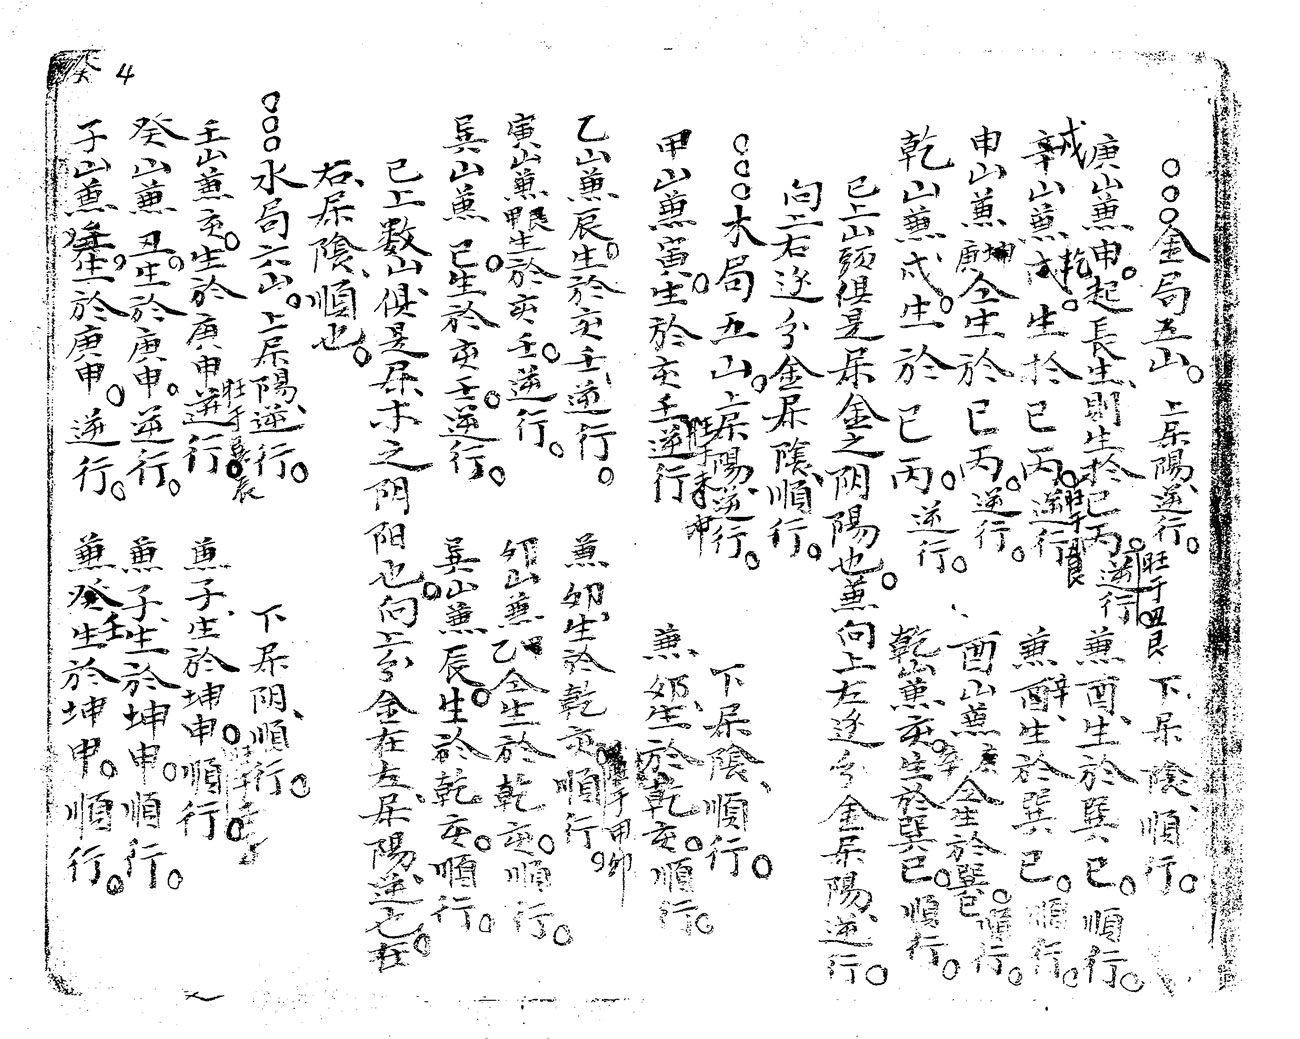 癸 4
○○○金局五山。上屬陽、逆行。旺于丑艮 下屬陰、順行。
庚山兼申。起長生、則生於巳丙。逆行 兼酉、生於巽巳。順行。
辛山兼戌 乾。生於巳丙。逆行 旺于艮 兼酉辛、生於巽巳。順行。
申山兼庚坤仝生於巳丙。逆行。 酉山兼辛庚仝生於巽巳。順行。
乾山兼戌。生於巳丙。逆行。 乾山兼亥。生於巽巳。順行。
已上山頭俱是屬金之阴陽也。兼向上左逆分金屬陽、逆行。
向上右逆分金屬陰、順行。
○○○木局五山。上屬陽、逆行。旺于未坤 下屬陰、順行。
甲山兼寅。生於亥壬逆行 兼卯生於乾亥。順行。
乙山兼辰。生於亥壬、逆行。 兼卯、生於乾亥。順行。旺于甲卯
寅山兼甲艮生於亥壬。逆行。 卯山兼乙甲仝生於乾亥。順行。
巽山兼巳。生於亥壬。逆行。 巽山兼辰。生於乾亥。順行。
已上數山俱是屬木之阴阳也。向上分金在左屬陽、逆也。在
右屬陰、順也。
○○○水局六山。上屬陽、逆行。旺于辰 下屬阴、順行。
壬山兼亥。生於庚申逆行 兼子、生於坤申。順行。
癸山兼丑。生於庚申。逆行。 兼子、生於坤申。順行。
子山兼生於庚申。逆行。 兼癸壬生於坤申。順行。